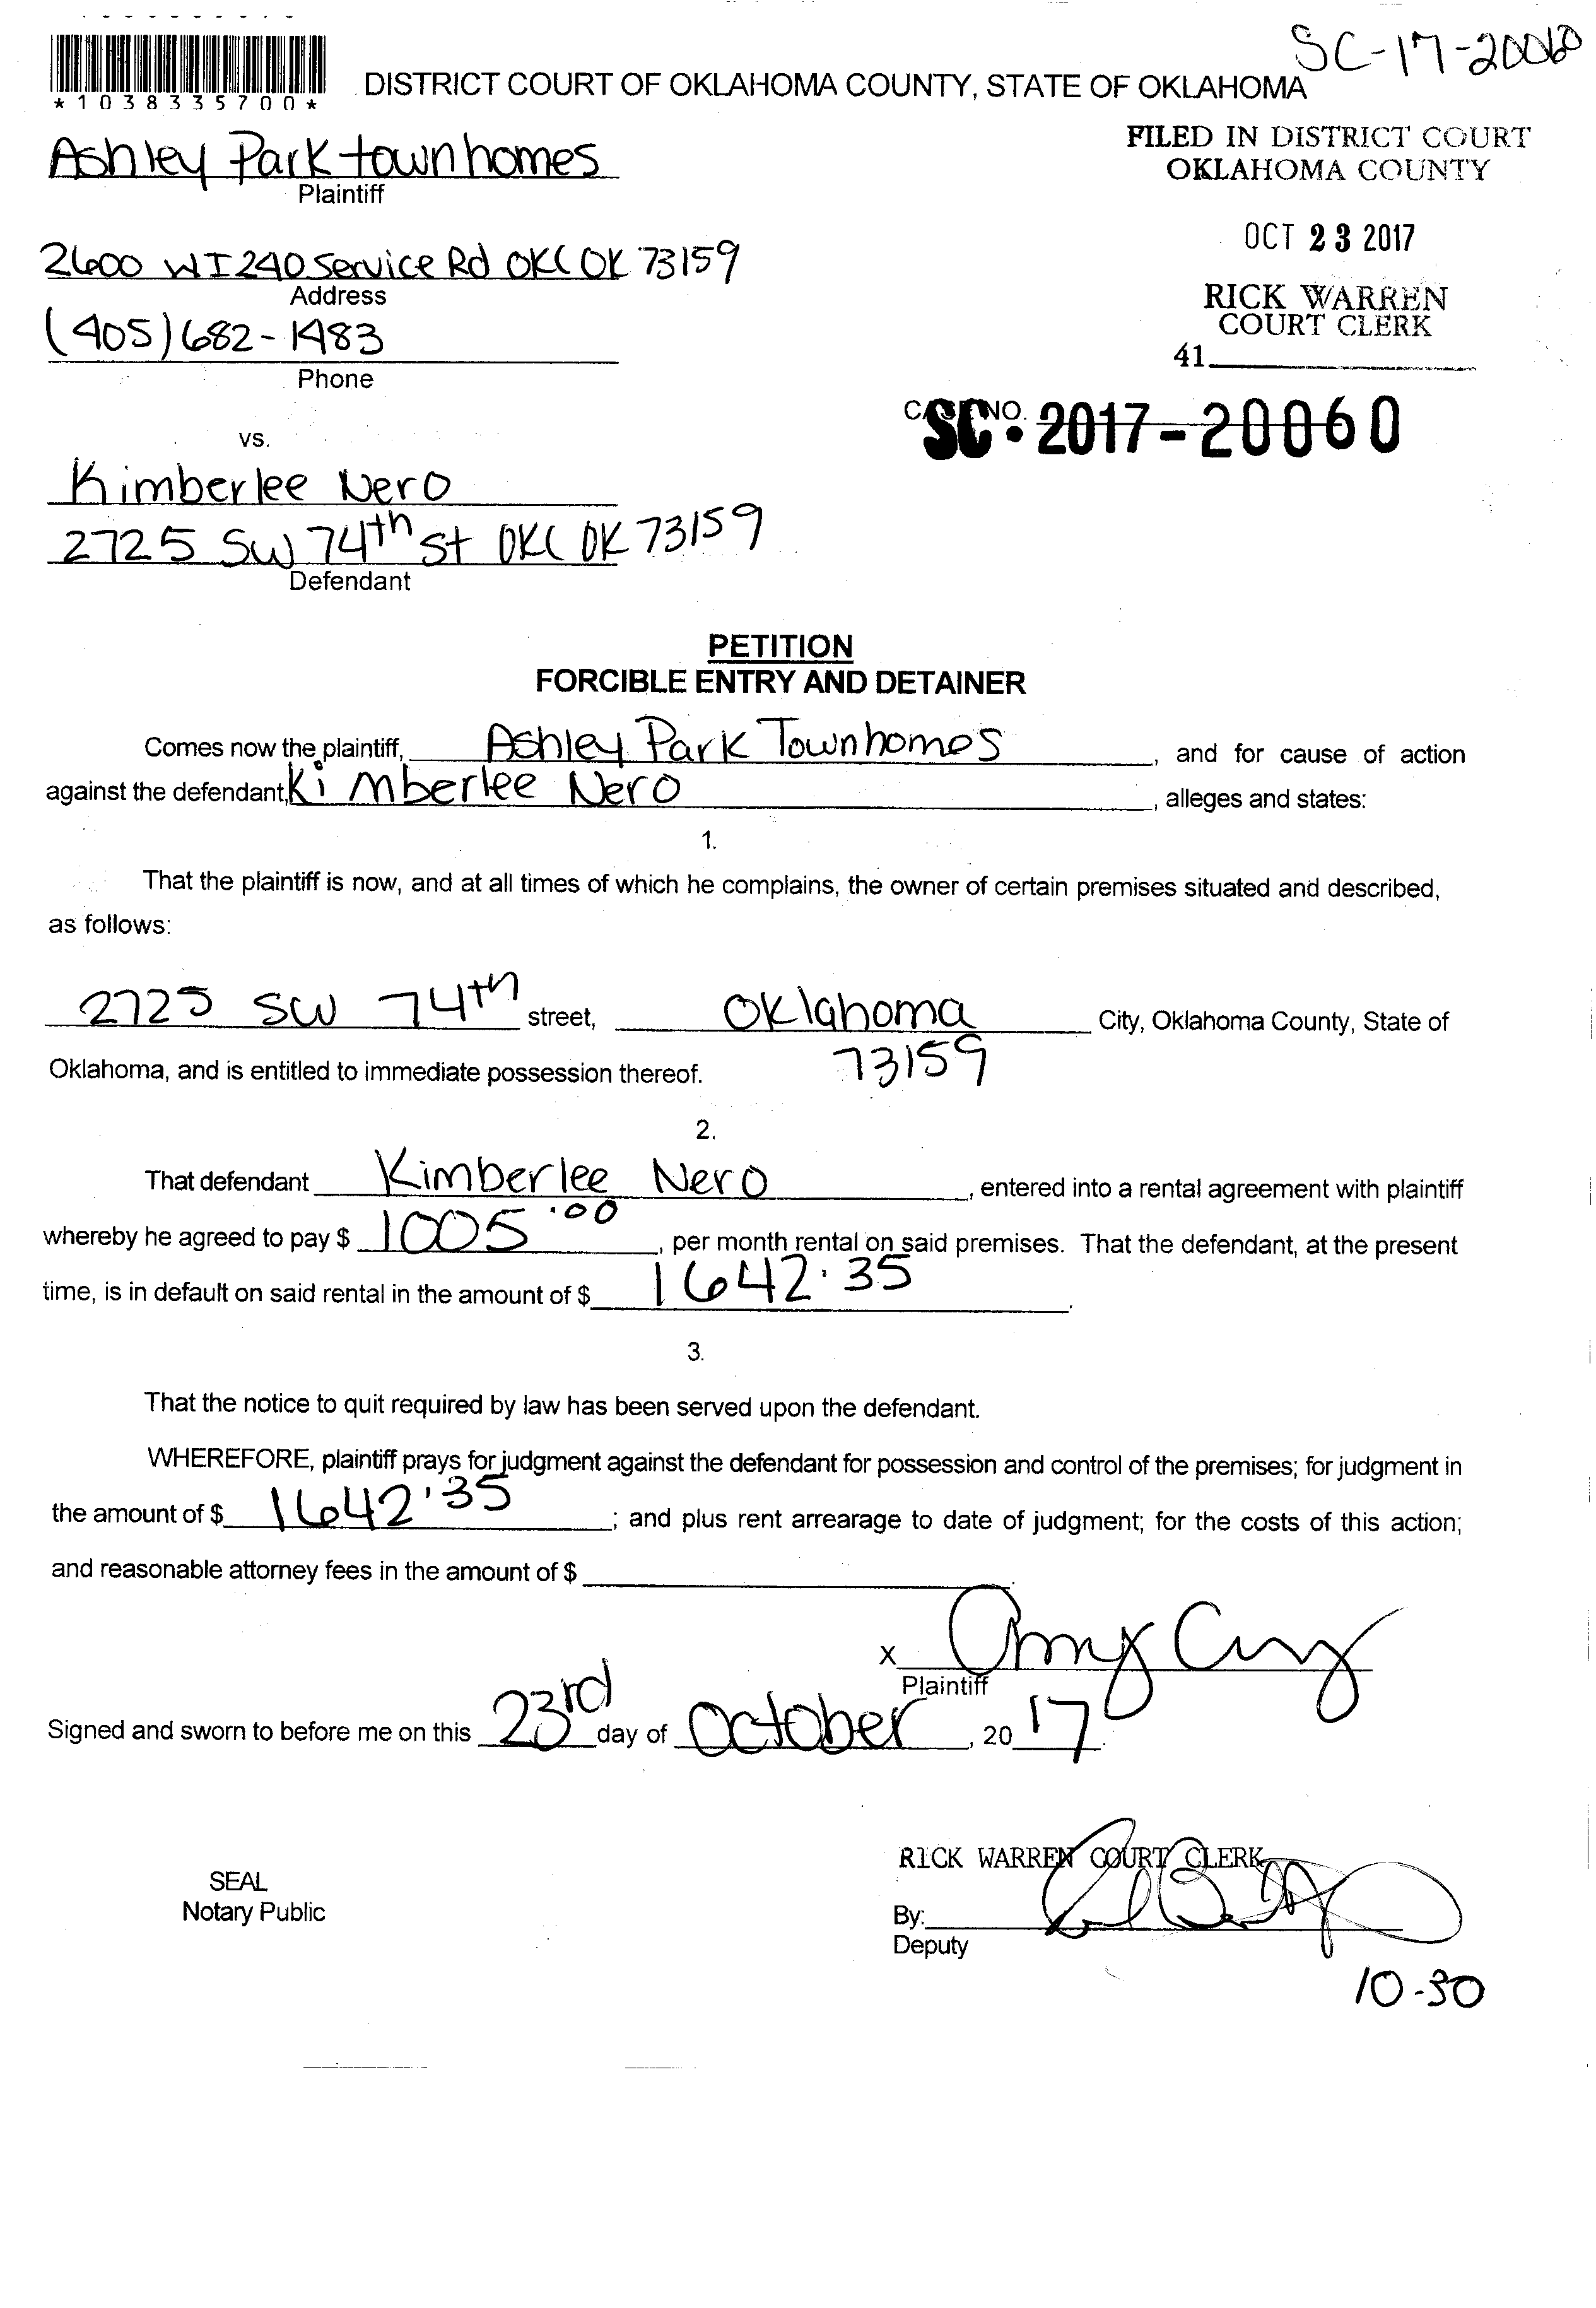 SC-17-20060
*1038335700*
DISTRICT COURT OF OKLAHOMA COUNTY, STATE OF OKLAHOMA
FILED IN DISTRICT COURT
OKLAHOMA COUNTY
Ashley Park townhomes
Plaintiff
OCT 23 2017
2600 W I 240 Service Rd OKC OK 73159
Address
RICK WARREN
COURT CLERK
(405) 682-1483
41
Phone
CASE NO.
SC. 2017-20060
vs.
Kimberlee Nero
2725 SW 74th St OKC OK 73159
Defendant
PETITION
FORCIBLE ENTRY AND DETAINER
Comes now the plaintiff, Ashley Park Townhomes, and for cause of action
against the defendant, Kimberlee Nero, alleges and states:
1.
That the plaintiff is now, and at all times of which he complains, the owner of certain premises situated and described,
as follows:
2725 SW 74th street, Oklahoma City, Oklahoma County, State of
73159
Oklahoma, and is entitled to immediate possession thereof.
2.
That defendant Kimberlee Nero, entered into a rental agreement with plaintiff
whereby he agreed to pay $ 1005.00, per month rental on said premises. That the defendant, at the present
time, is in default on said rental in the amount of $ 1642.35.
3.
That the notice to quit required by law has been served upon the defendant.
WHEREFORE, plaintiff prays for judgment against the defendant for possession and control of the premises; for judgment in
the amount of $ 1642.35; and plus rent arrearage to date of judgment; for the costs of this action;
and reasonable attorney fees in the amount of $ .
x Amy
Plaintiff
Signed and sworn to before me on this 23rd day of October, 2017.
RICK WARREN COURT CLERK
SEAL
Notary Public
By:
Deputy
10-30